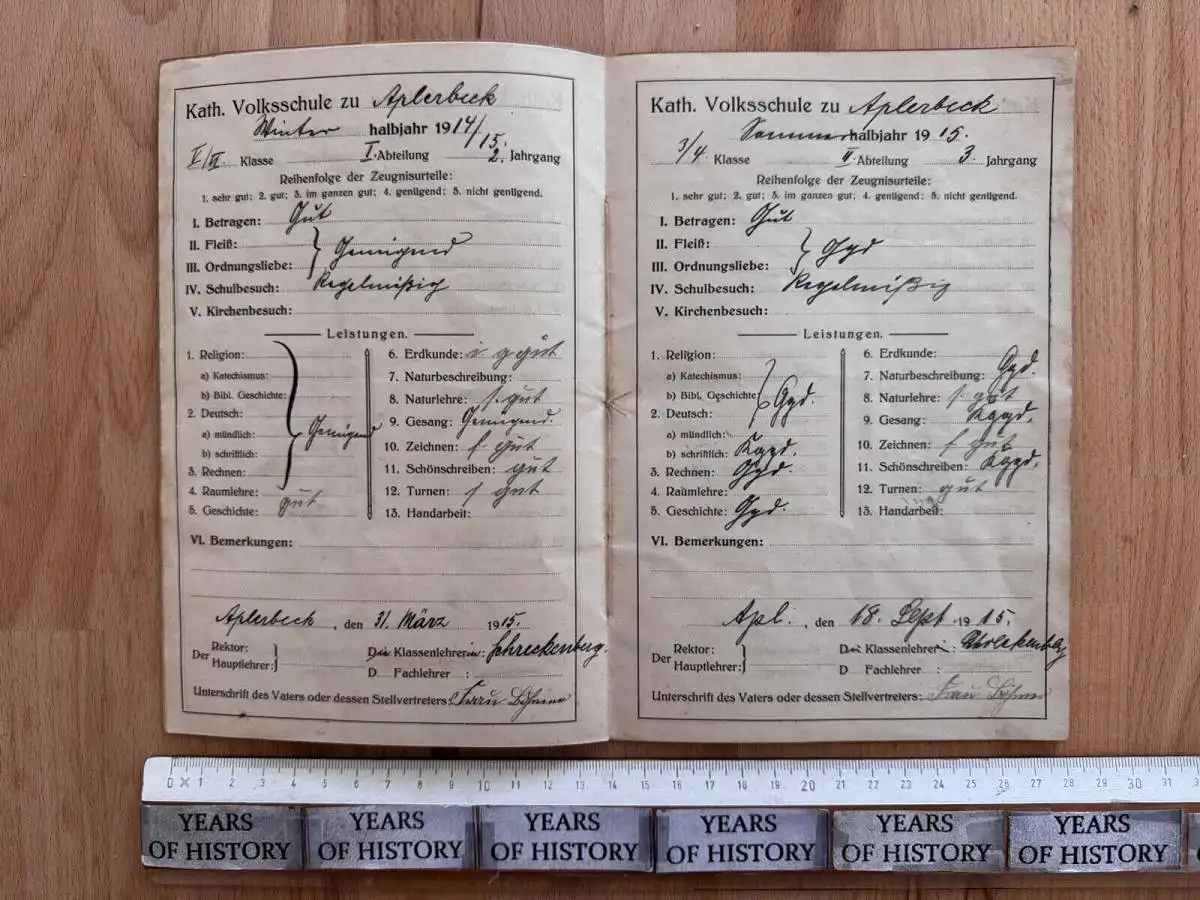 Kath. Volksschule zu Aplerbeck
Winter halbjahr 1914/15.
Klasse I. Abteilung 2. Jahrgang
Reihenfolge der Zeugnisurteile:
1. sehr gut; 2. gut; 3. im ganzen gut; 4. genügend; 5. nicht genügend.
I. Betragen: Gut
II. Fleiß:
Genügend
III. Ordnungsliebe:
IV. Schulbesuch: Regelmäßig
V. Kirchenbesuch:
Leistungen.
1. Religion:
a) Katechismus:
b) Bibl. Geschichte:
2. Deutsch:
a) mündlich: Genügend
b) schriftlich:
3. Rechnen:
4. Raumlehre:
5. Geschichte: gut
6. Erdkunde: gut
7. Naturbeschreibung:
8. Naturlehre: s. gut
9. Gesang: Genügend.
10. Zeichnen: s gut
11. Schönschreiben: gut
12. Turnen: s gut
13. Handarbeit:
VI. Bemerkungen:
Aplerbeck, den 31. März 1915.
Der Rektor: Hauptlehrer:
Die Klassenlehrerin: Schreckenberg.
D Fachlehrer :
Unterschrift des Vaters oder dessen Stellvertreters: Frau
Kath. Volksschule zu Aplerbeck
Sommer halbjahr 1915.
3/4 Klasse II Abteilung 3. Jahrgang
Reihenfolge der Zeugnisurteile:
1. sehr gut; 2. gut; 3. im ganzen gut; 4. genügend; 5. nicht genügend.
I. Betragen: Gut
II. Fleiß:
Ggd
III. Ordnungsliebe:
IV. Schulbesuch: Regelmäßig
V. Kirchenbesuch:
Leistungen.
1. Religion:
a) Katechismus:
b) Bibl. Geschichte: Ggd.
2. Deutsch:
a) mündlich:
b) schriftlich:
3. Rechnen: Ggd.
4. Raumlehre:
5. Geschichte: Ggd.
6. Erdkunde:
7. Naturbeschreibung: Ggd.
8. Naturlehre: s. gut
9. Gesang:
10. Zeichnen: s gut
11. Schönschreiben:
12. Turnen: gut
13. Handarbeit:
VI. Bemerkungen:
Apl., den 18. Sept 1915.
Der Rektor: Hauptlehrer:
Die Klassenlehrerin: Schreckenberg
D Fachlehrer :
Unterschrift des Vaters oder dessen Stellvertreters: Frau
0 1 2 3 4 5 6 7 8 9 10 11 12 13 14 15 16 17 18 19 20 21 22 23 24 25 26 27 28 29 30 31
YEARS OF HISTORY
YEARS OF HISTORY
YEARS OF HISTORY
YEARS OF HISTORY
YEARS OF HISTORY
YEARS OF HISTORY